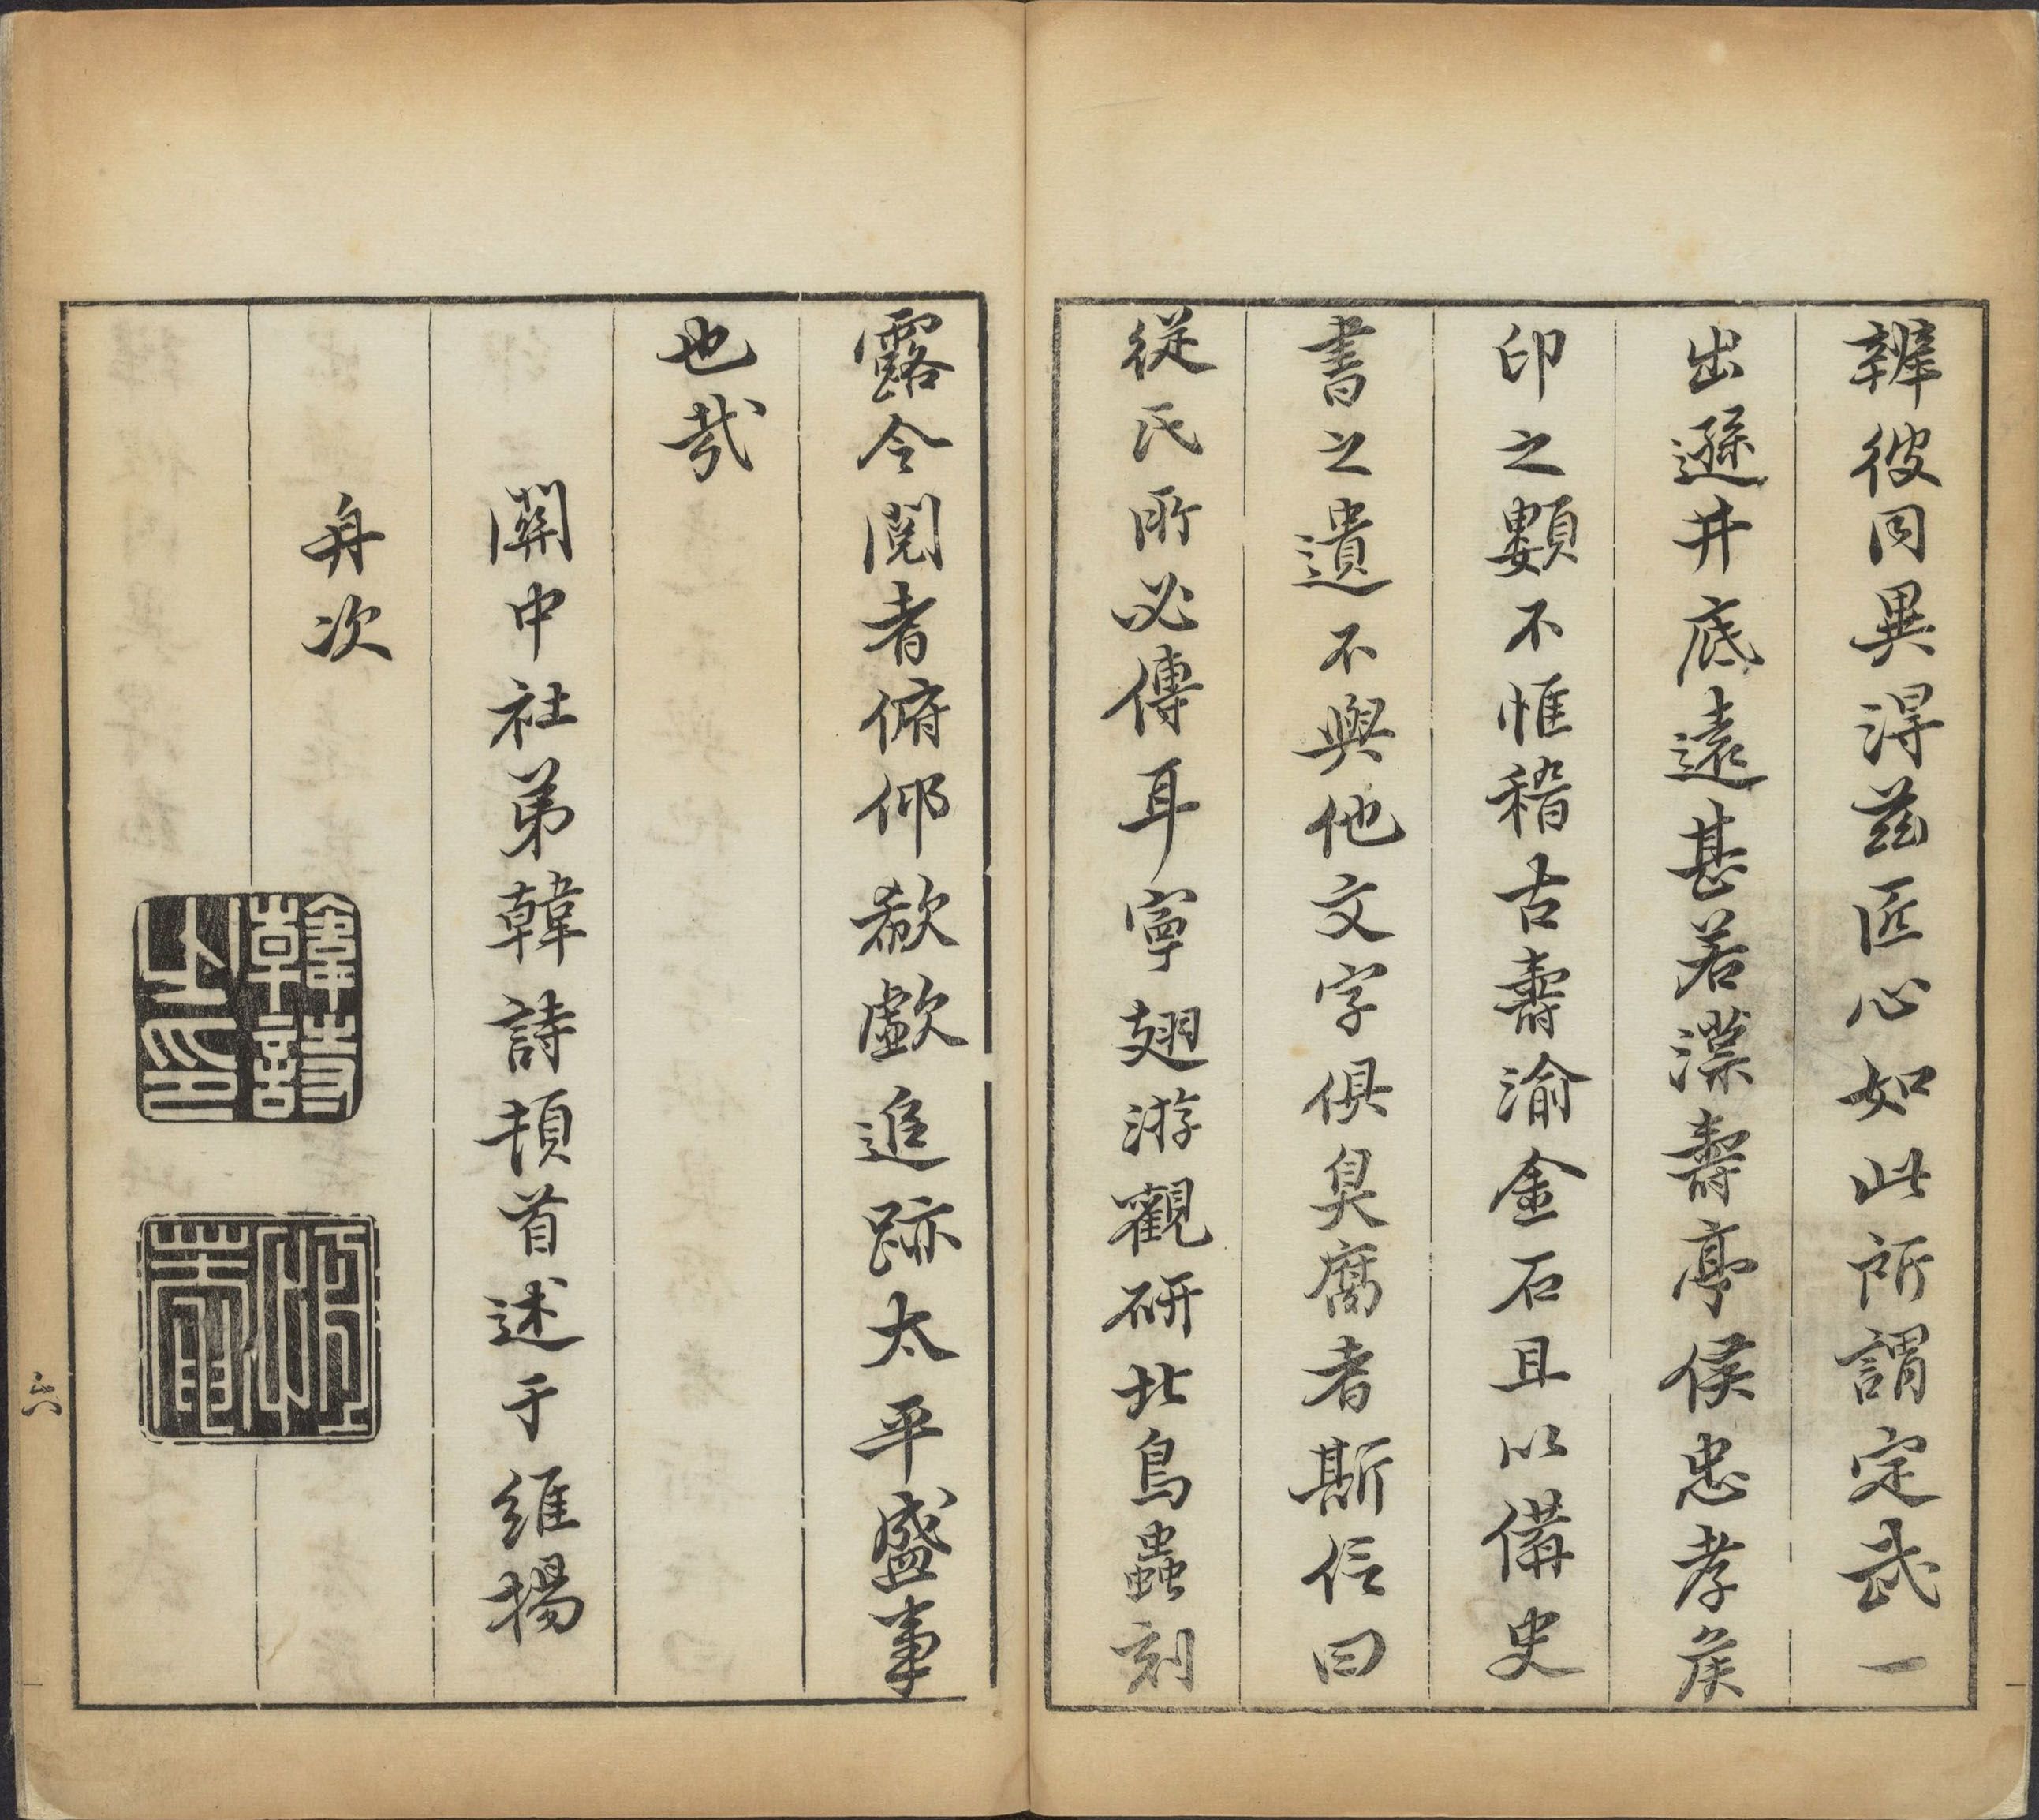 辨彼同異淂茲匠心如此所謂定武一
出遜井底遠甚若漢壽亭侯忠孝矦
印之類不惟稽古壽渝金石且以備史
書之遺不與他文字俱臭腐者斯信曰
從氏所必傳耳寧翅游觀研北鳥蟲刻
露令閱者俯仰欷歔追跡太平盛事
也哉
關中社弟韓詩頓首述于維揚
舟次
韓詩之印
六